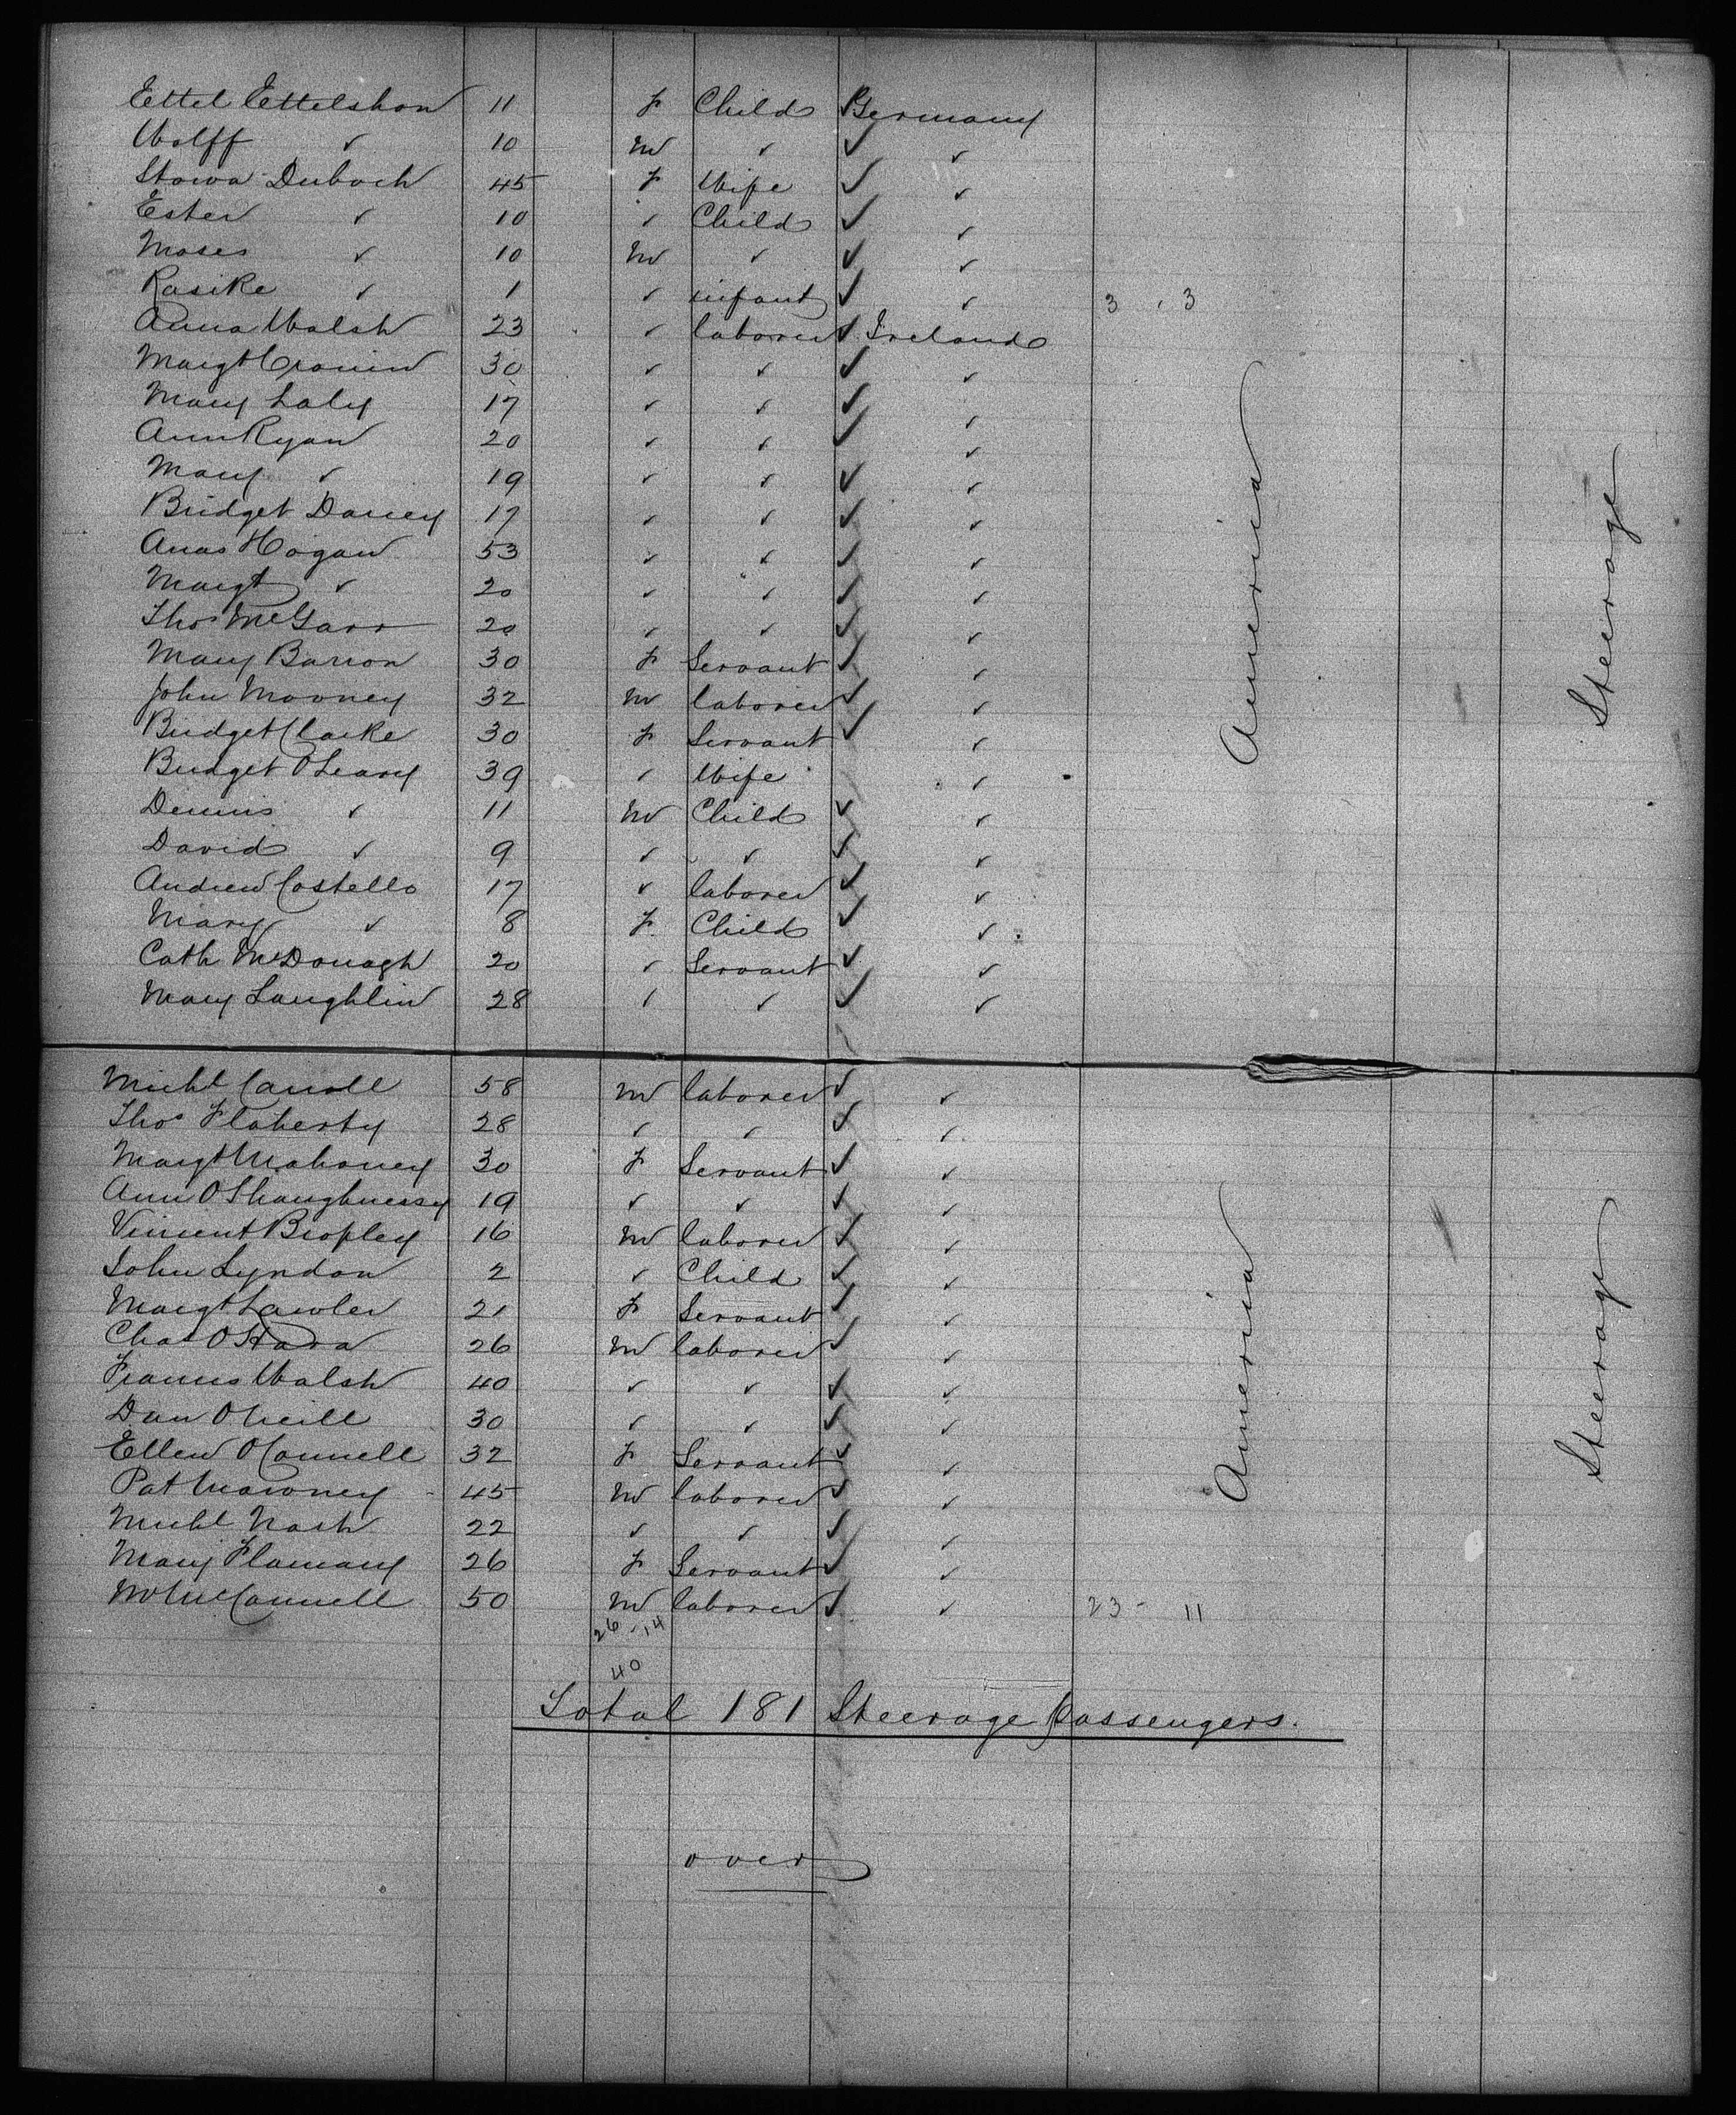 Ettel Ettelshon 11 F Child Germany
Wolff ✓ 10 M ✓ ✓ ✓
Stowa Duboch 45 F Wife ✓ ✓
Ester ✓ 10 ✓ Child ✓ ✓
Moses ✓ 10 M ✓ ✓ ✓
Rasike ✓ 1 ✓ infant ✓ ✓ 3 3
Anna Walsh 23 ✓ laborer ✓ Ireland
Margt Cronin 30 ✓ ✓ ✓ ✓
Mary Laly 17 ✓ ✓ ✓ ✓
Ann Ryan 20 ✓ ✓ ✓ ✓
Mary ✓ 19 ✓ ✓ ✓ ✓
Bridget Darcey 17 ✓ ✓ ✓ ✓
Anas Hogan 53 ✓ ✓ ✓ ✓
Margt ✓ 20 ✓ ✓ ✓ ✓
Thos McGarr 20 ✓ ✓ ✓ ✓
Mary Barron 30 F Servant ✓ ✓
John Mooney 32 M laborer ✓ ✓
Bridget Clarke 30 F Servant ✓ ✓
Bridget OLeary 39 ✓ Wife ✓
Dennis ✓ 11 M Child ✓ ✓
David ✓ 9 ✓ ✓ ✓ ✓
Andrew Costello 17 ✓ laborer ✓ ✓
Mary ✓ 8 F Child ✓ ✓
Cath McDonagh 20 ✓ Servant ✓ ✓
Mary Laughlin 28 ✓ ✓ ✓ ✓
America
Steerage
Michl Carroll 58 M laborer ✓ ✓
Thos Flaherty 28 ✓ ✓ ✓ ✓
Margt Mahoney 30 F Servant ✓ ✓
Ann OShaughnessy 19 ✓ ✓ ✓ ✓
Vincent Brophey 16 M laborer ✓ ✓
John Lyndon 2 ✓ Child ✓ ✓
Margt Lawler 21 F Servant ✓ ✓
Chas OHara 26 M laborer ✓ ✓
Francis Walsh 40 ✓ ✓ ✓ ✓
Dan ONeill 30 ✓ ✓ ✓ ✓
Ellen OConnell 32 F Servant ✓ ✓
Pat Mawney 45 M laborer ✓ ✓
Michl Nash 22 ✓ ✓ ✓ ✓
Mary Flamany 26 F Servant ✓ ✓
Wm McConnell 50 M laborer ✓ ✓ 23 - 11
America
Steerage
26 - 14
40
Total 181 Steerage Passengers.
over